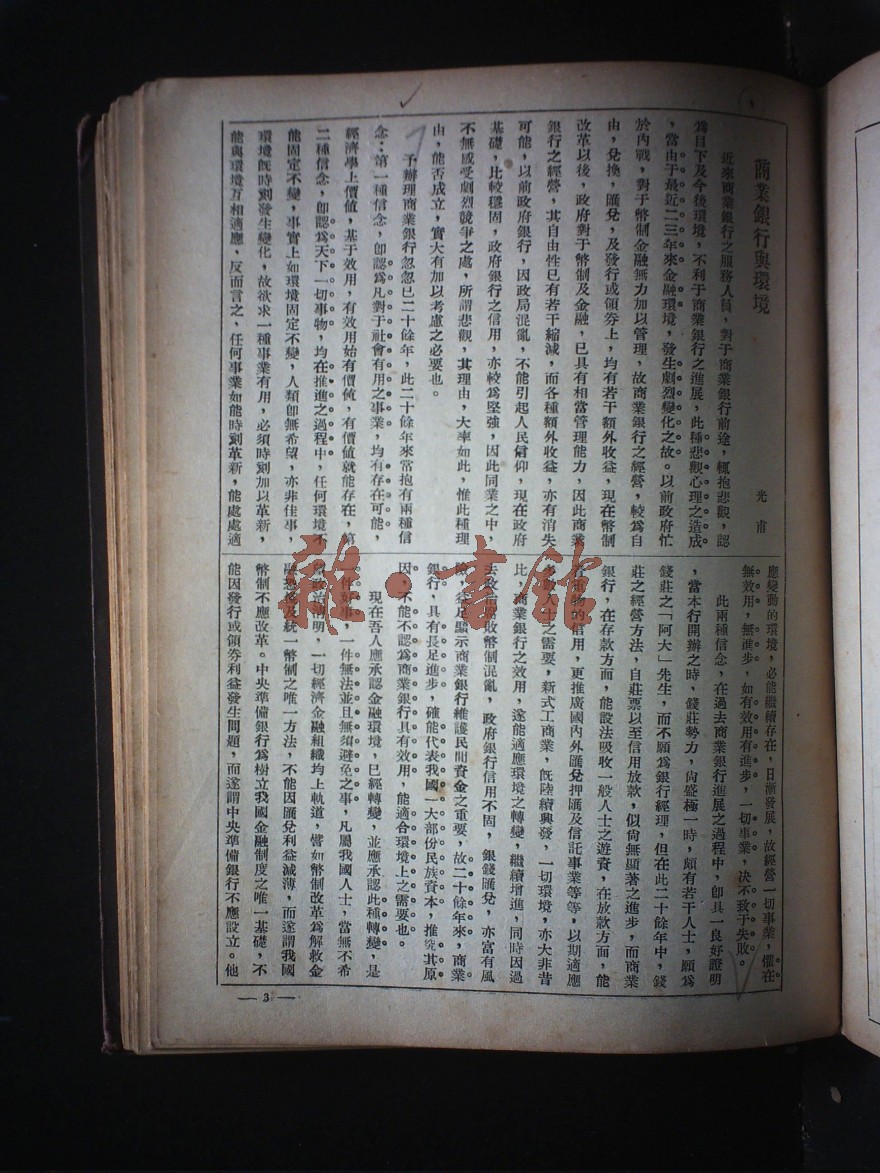 商業銀行與環境
光甫
近來商業銀行之服務人員，對于商業銀行前途，輒抱悲觀，認
爲目下及今後環境，不利于商業銀行之進展，此種悲觀心理之造成
，當由于最近二三年來金融環境，發生劇烈變化之故。以前政府忙
於內戰，對于幣制金融無力加以管理，故商業銀行之經營，較爲自
由，兌換，匯兌，及發行或領券上，均有若干額外收益，現在幣制
改革以後，政府對于幣制及金融，已具有相當管理能力，因此商業
銀行之經營，其自由性已有若干縮減，而各種額外收益，亦有消失
可能，以前政府銀行，因政局混亂，不能引起人民信仰，現在政府
基礎，比較穩固，政府銀行之信用，亦較爲堅強，因此同業之中，
不無感受劇烈競爭之處，所謂悲觀，其理由，大率如此，惟此種理
由，能否成立，實大有加以考慮之必要也。
予辦理商業銀行忽忽已二十餘年，此二十餘年來當抱有兩種信
念：第一種信念，卽認爲凡對于社會有用之事業，均有存在可能，
經濟學上價値，基于效用，有效用始有價値，有價値就能存在，第
二種信念，卽認爲天下一切事物，均在推進之過程中，任何環境不
能固定不變，事實上如環境固定不變，人類卽無希望，亦非佳事，
環境旣時刻發生變化，故欲求一種事業有用，必須時刻加以革新，
能與環境互相適應，反而言之，任何事業如能時刻革新，能處處適
應變動的環境，必能繼續存在，日漸發展，故經營一切事業，懼在
無效用，無進步，如有效用有進步，一切事業，決不致于失敗。
此兩種信念，在過去商業銀行進展之過程中，卽具一良好證明
，當本行開辦之時，錢莊勢力，尙盛極一時，頗有若干人士，願爲
錢莊之「阿大」先生，而不願爲銀行經理，但在此二十餘年中，錢
莊之經營方法，自莊票以至信用放款，似尙無顯著之進步，而商業
銀行，在存款方面，能設法吸收一般人士之遊資，在放款方面，能
物的信用，更推廣國內外匯兌押匯及信託事業等等，以期適應
人士之需要，新式工商業，旣陸續興發，一切環境，亦大非昔
比，商業銀行之效用，遂能適應環境之轉變，繼續增進，同時因過
去政府腐敗幣制混亂，政府銀行信用不固，銀錢匯兌，亦富有風
險，益足顯示商業銀行維護民間資金之重要，故二十餘年來，商業
銀行，具有長足進步，確能代表我國一大部份民族資本，推究其原
因，不能不認爲商業銀行具有效用，能適合環境上之需要也。
現在吾人應承認金融環境，已經轉變，並應承認此種轉變，是
一件好事，一件無法並且無須避免之事，凡屬我國人士，當無不希
政治淸明，一切經濟金融組織均上軌道，譬如幣制改革爲解救金
融恐慌及統一幣制之唯一方法，不能因匯兌利益減薄，而遂謂我國
幣制不應改革。中央準備銀行爲樹立我國金融制度之唯一基礎，不
能因發行或領券利益發生問題，而遂謂中央準備銀行不應設立。他
— 3 —
雜·書館